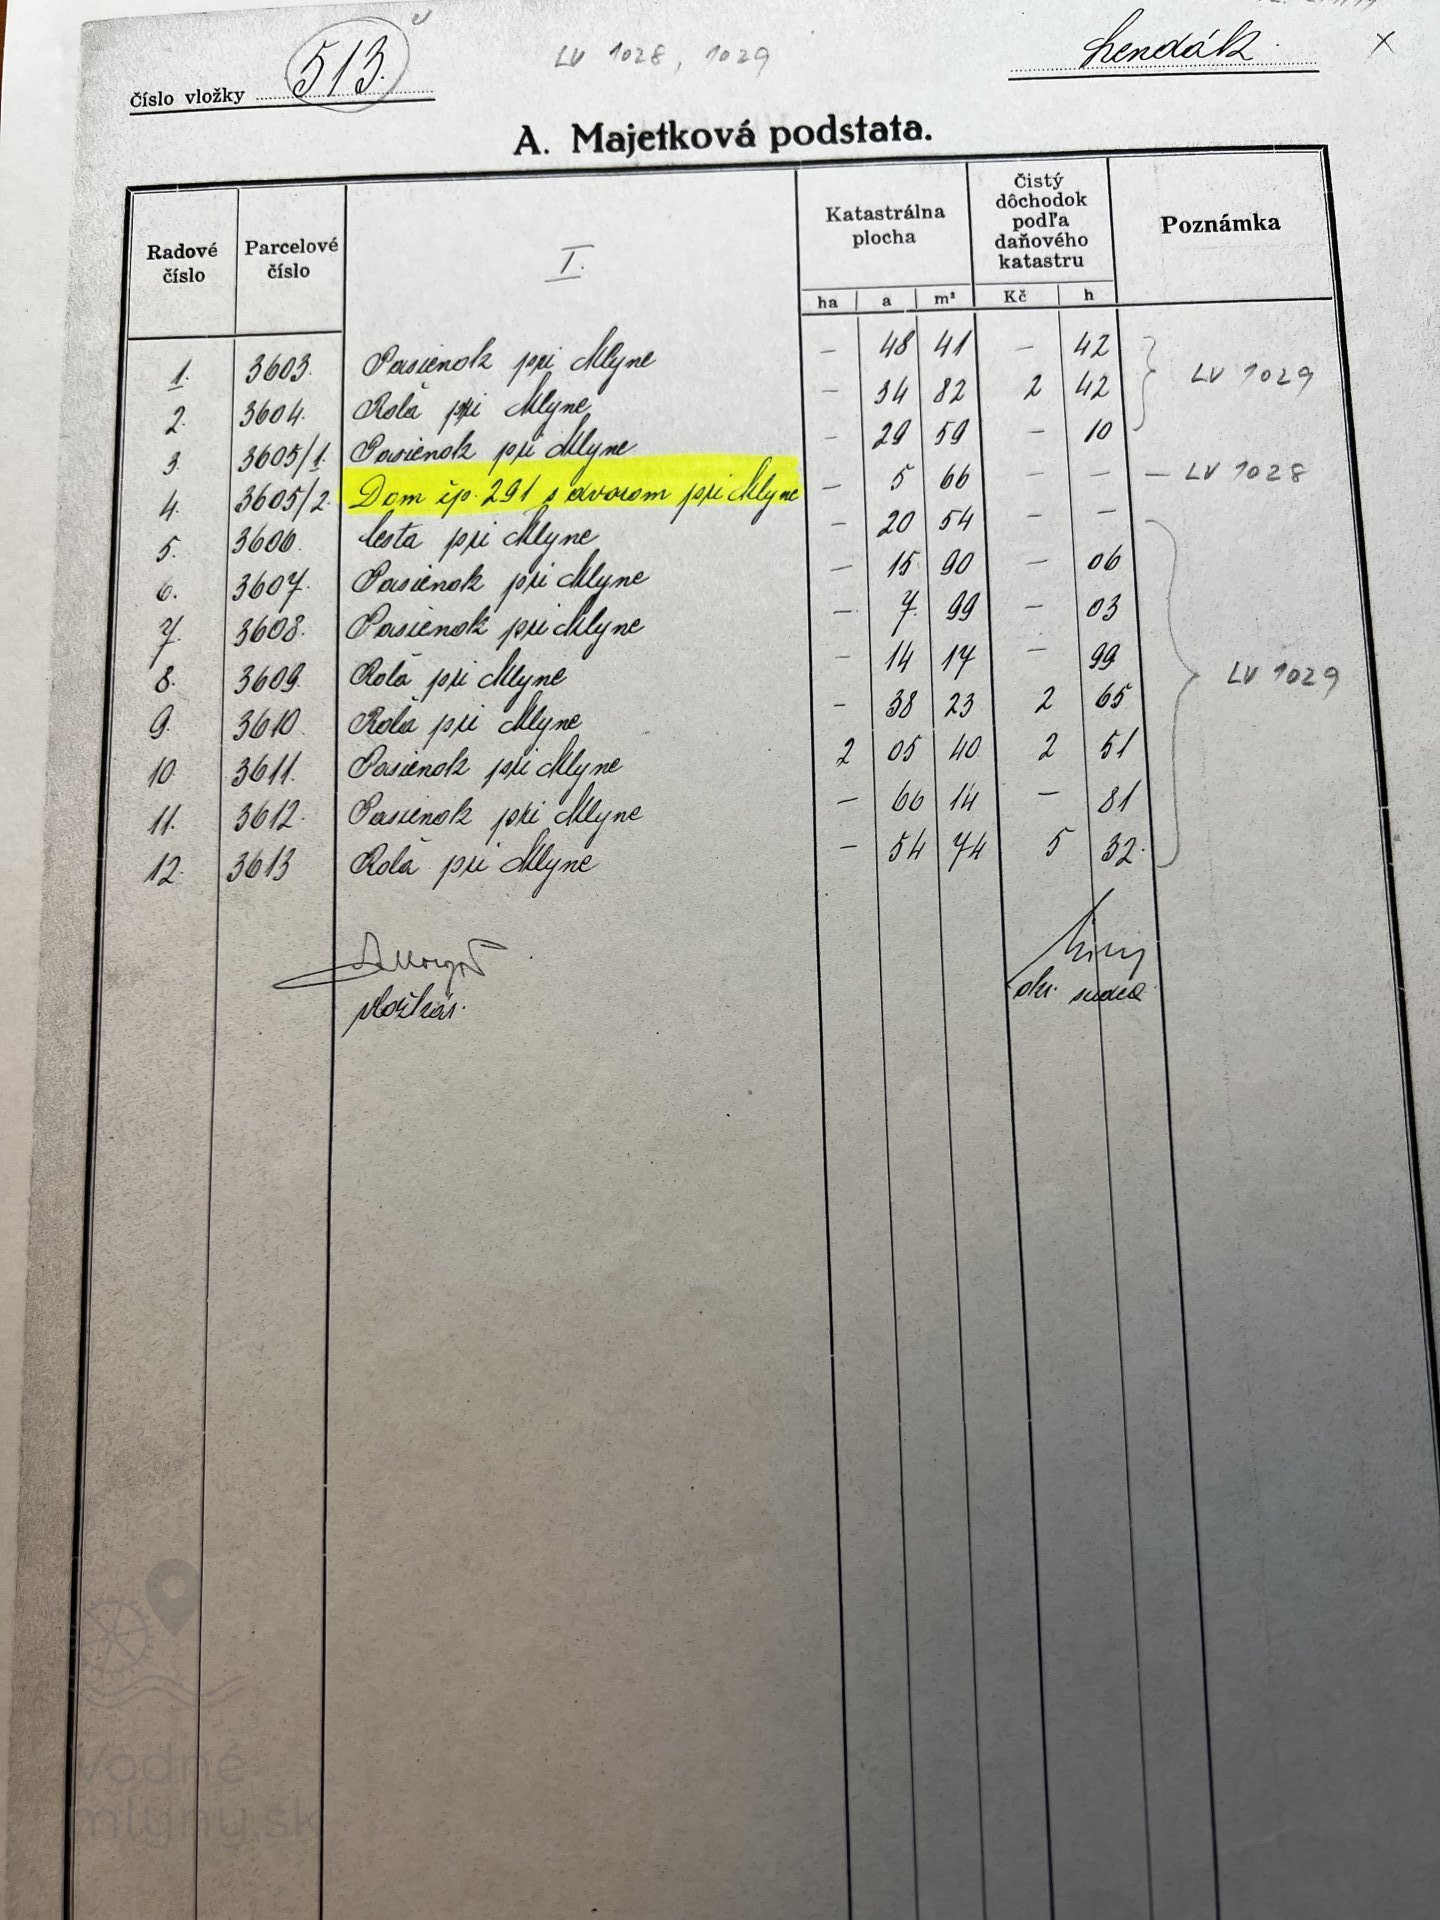 Číslo vložky 513.
LV 1028, 1029
Lendák
X
A. Majetková podstata.
Radové číslo | Parcelové číslo | I. | Katastrálna plocha | Čistý dôchodok podľa daňového katastru | Poznámka
ha | a | m² | Kč | h
1. 3603. Pasienok pri Mlyne — 48 41 — 42
2. 3604. Rola pri Mlyne — 34 82 2 42 LV 1029
3. 3605/1. Pasienok pri Mlyne — 29 59 — 10
4. 3605/2. Dom čp. 291 s dvorom pri Mlyne — 5 66 — — — LV 1028
5. 3606. Cesta pri Mlyne — 20 54 — —
6. 3607. Pasienok pri Mlyne — 15 90 — 06
7. 3608. Pasienok pri Mlyne — 7. 99 — 03
8. 3609. Rola pri Mlyne — 14 17 — 99
9. 3610. Rola pri Mlyne — 38 23 2 65 LV 1029
10. 3611. Pasienok pri Mlyne 2 05 40 2 51
11. 3612. Pasienok pri Mlyne — 66 14 — 81
12. 3613 Rola pri Mlyne — 54 74 5 32.
vložkár. okr. sudca
Vodné
mlyny.sk